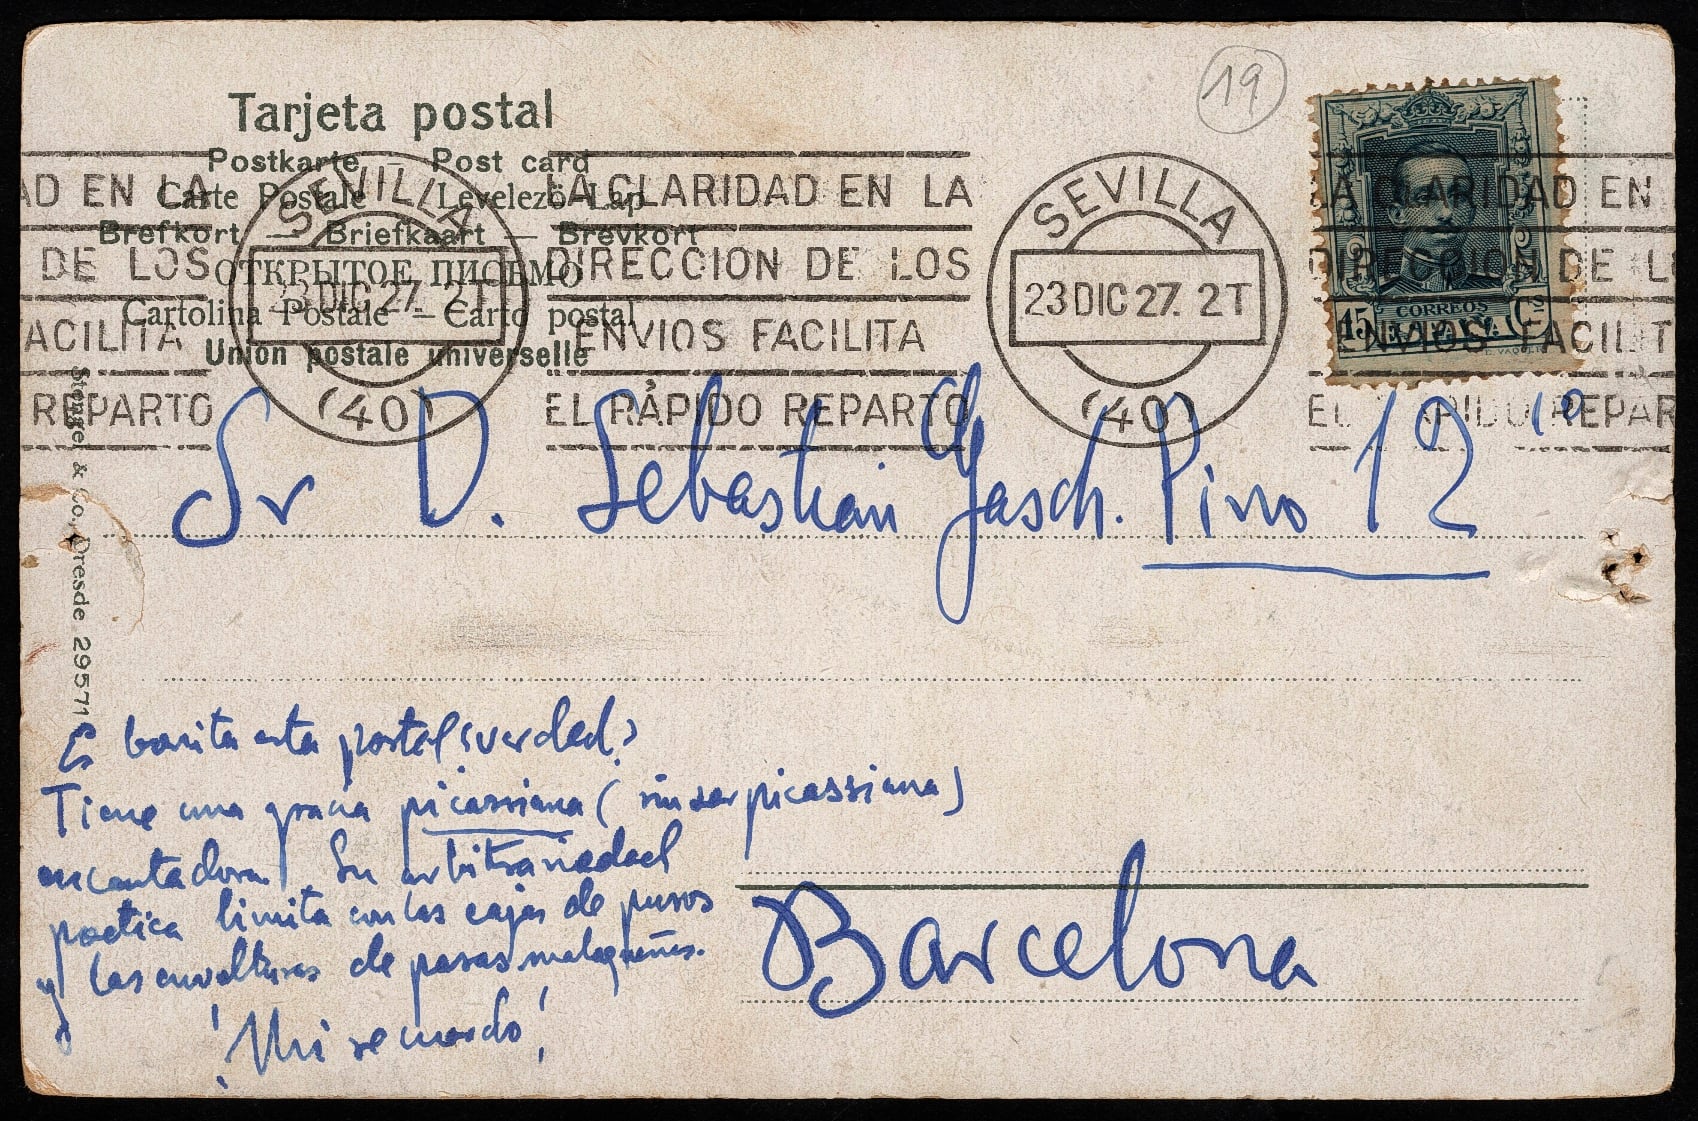 19
Tarjeta postal
Postkarte – Post card
Carte Postale Levelező-Lap
Brefkort – Briefkaart – Brevkort
ОТКРЫТОЕ ПИСЬМО
Cartolina Postale – Carto postal
Union postale universelle
AD EN LA
DE LOS
ACILITA
REPARTO
SEVILLA
23 DIC 27. 2T
(40)
LA CLARIDAD EN LA
DIRECCION DE LOS
ENVIOS FACILITA
EL RÁPIDO REPARTO
SEVILLA
23 DIC 27. 2T
(40)
LA CLARIDAD EN
DIRECCION DE L
ENVIOS FACILIT
EL RAPIDO REPAR
CORREOS
ESPAÑA
15 Cs
Stengel & Co., Dresde 29571
Sr D. Sebastian Gasch. Pino 12 1º
Barcelona
Es bonita esta postal ¿verdad?
Tiene una gracia picassiana (sin ser picassiana)
encantadora. Su arbitrariedad
poetica limita con las cajas de puros
y las envolturas de pasas malagueñas.
¡Mi recuerdo!